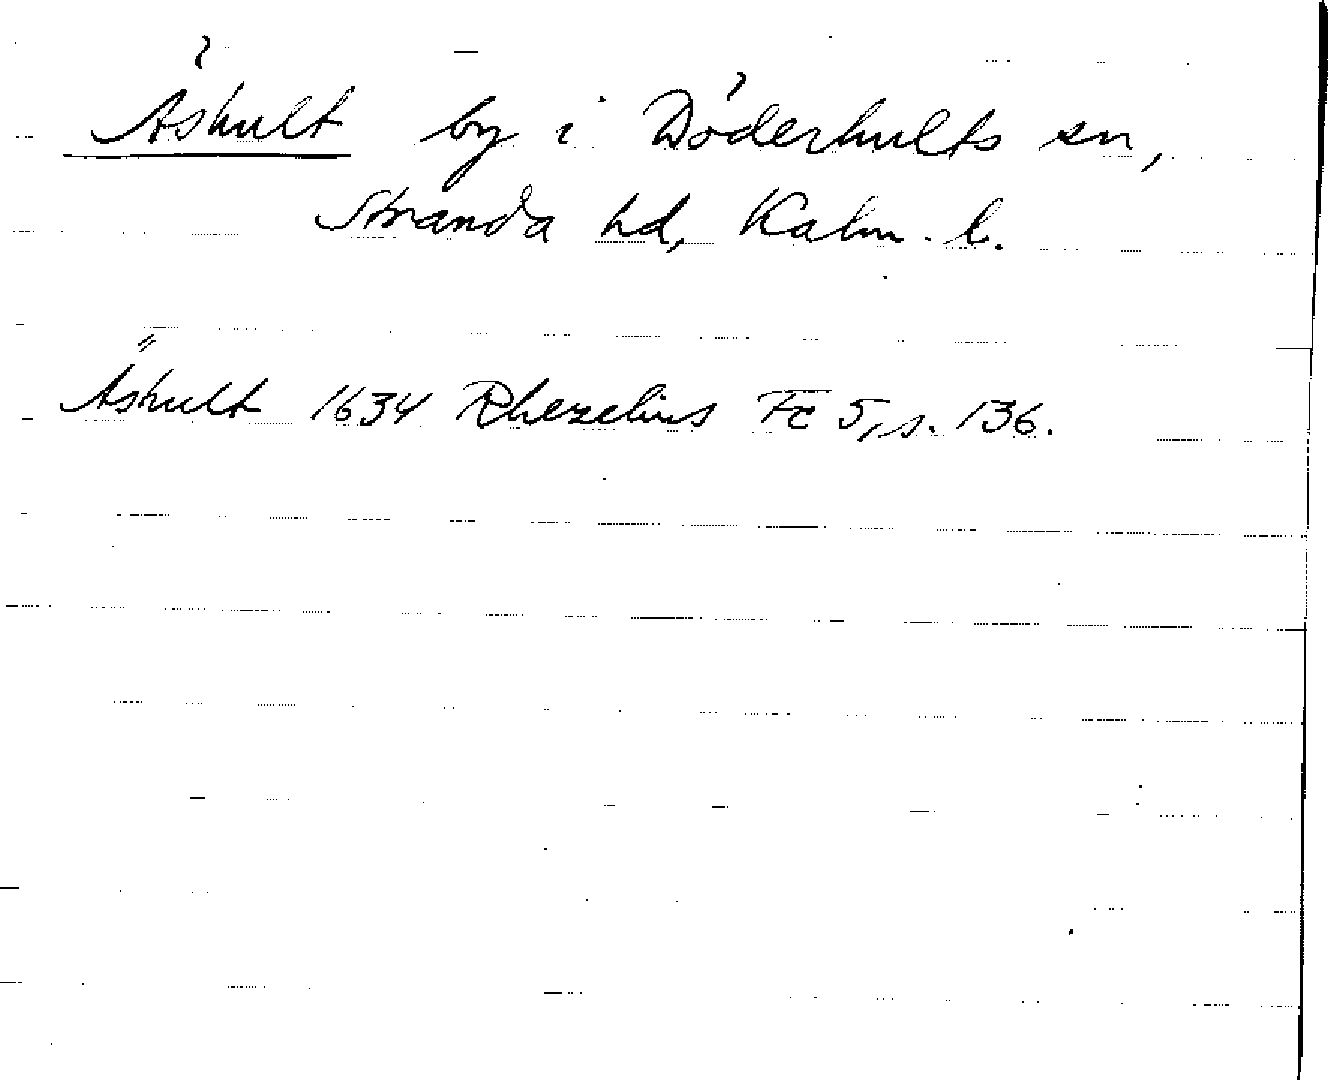 Äshult by i Döderhults sn,
Stranda hd, Kalm. l.
Äshult 1634 Rhezelius Fc 5, s. 136.